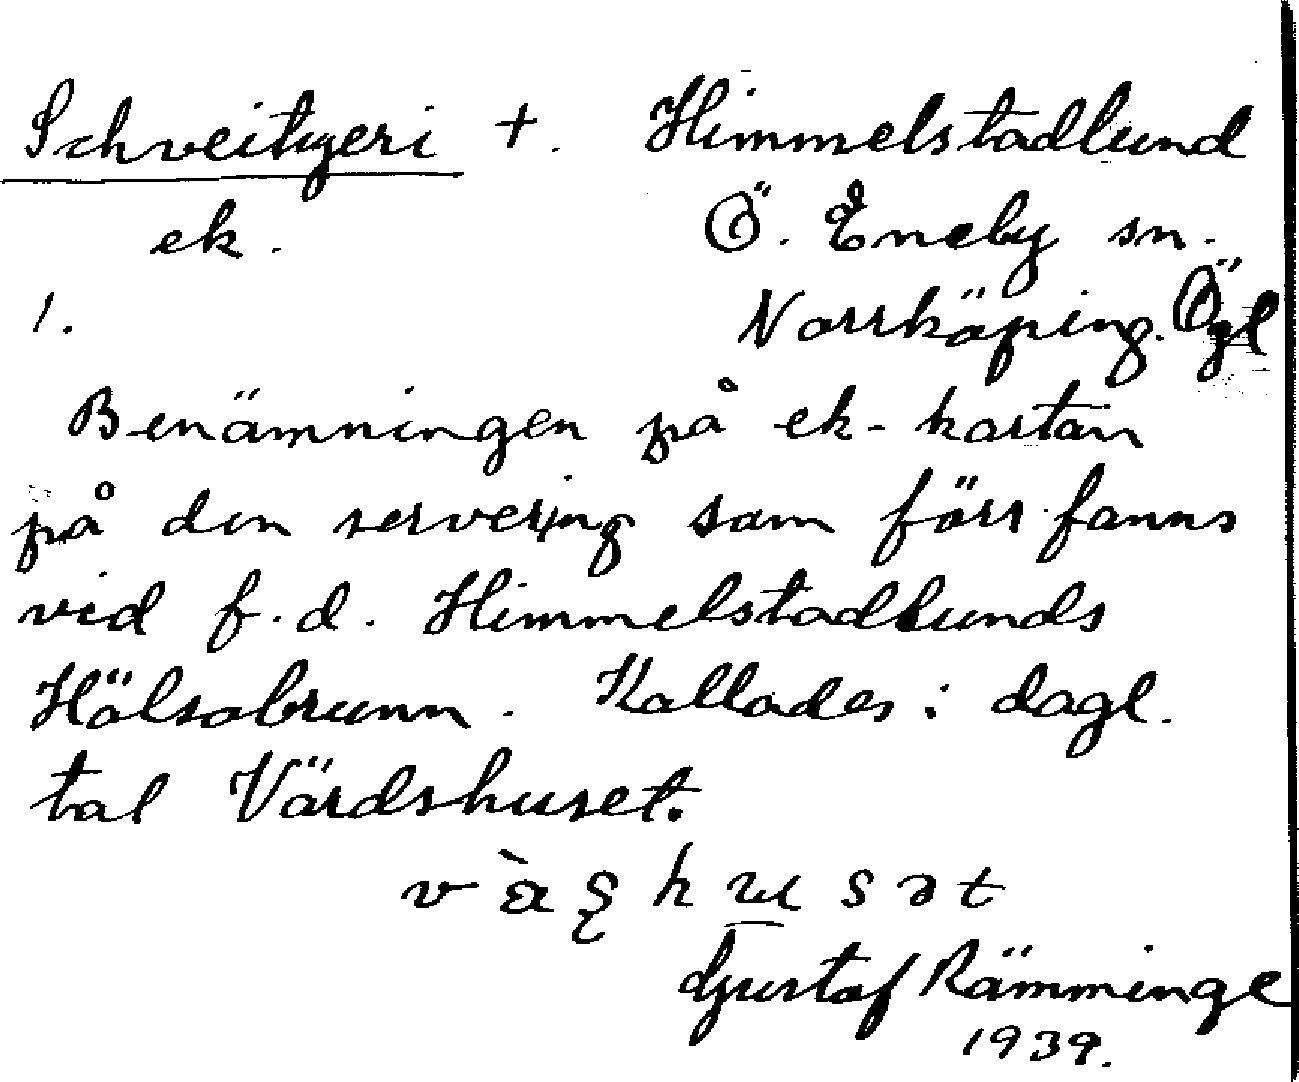 Schveitzeri +. Himmelstadlund
ek. Ö. Eneby sn.
1. Norrköping. Ögl
Benämningen på ek-kartan
på den servering som förr fanns
vid f.d. Himmelstadlunds
Hälsobrunn. Kallades i dagl.
tal Värdshuset.
Gustaf Rämminge
1939.